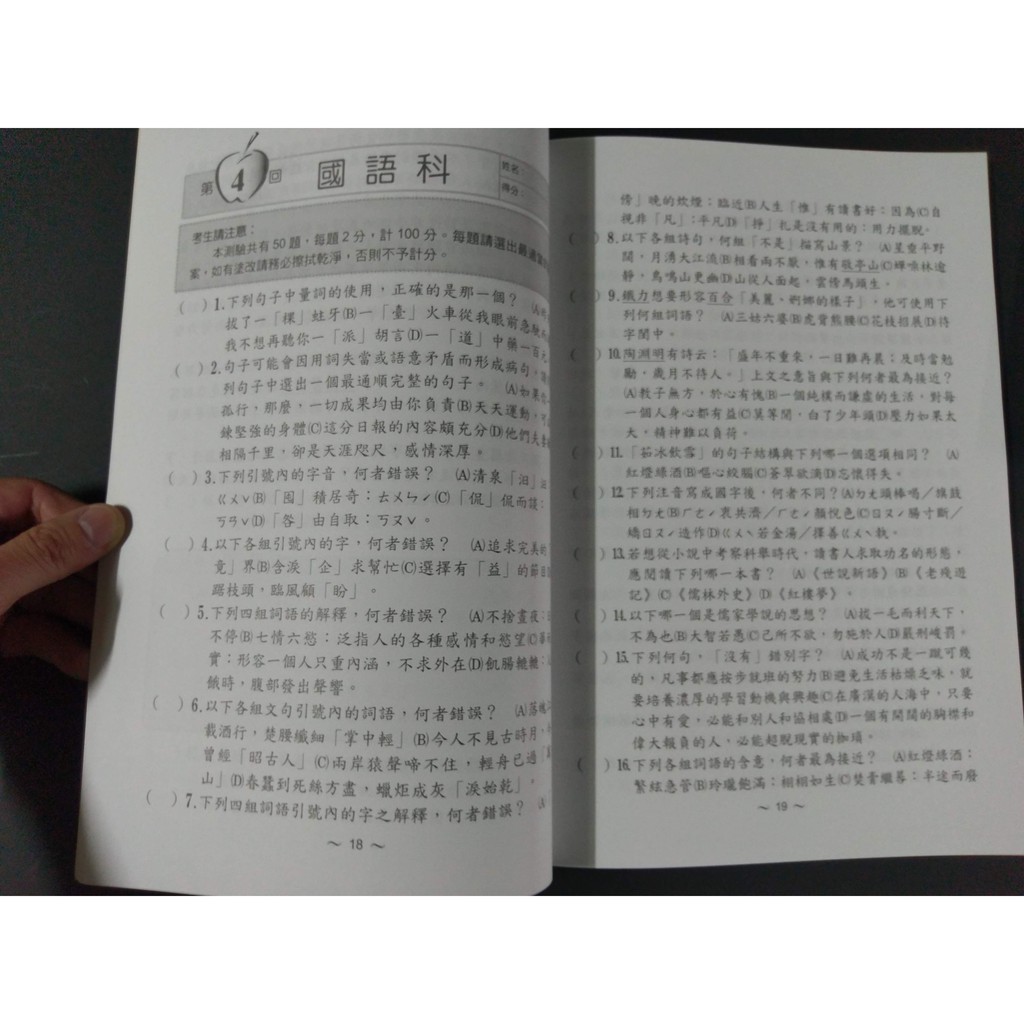 第4回 國語科
姓名:
得分:
考生請注意:
本測驗共有50題,每題2分,計100分。每題請選出最適當
案,如有塗改請務必擦拭乾淨,否則不予計分。
( )1.下列句子中量詞的使用,正確的是那一個? (A)
拔了一「棵」蛀牙(B)一「臺」火車從我眼前急駛
我不想再聽你一「派」胡言(D)一「道」中藥一百元
( )2.句子可能會因用詞失當或語意矛盾而形成病句,
列句子中選出一個最通順完整的句子。 (A)如果
孤行,那麼,一切成果均由你負責(B)天天運動,可
鍊堅強的身體(C)這分日報的內容頗充分(D)他們夫妻
相隔千里,卻是天涯咫尺,感情深厚。
( )3.下列引號內的字音,何者錯誤? (A)清泉「汩」
ㄍㄨˇ(B)「囤」積居奇:ㄊㄨㄣˊ(C)「侃」侃而談:
ㄎㄢˇ(D)「咎」由自取:ㄎㄡˇ。
( )4.以下各組引號內的字,何者錯誤? (A)追求完美的「
竟」界(B)含淚「企」求幫忙(C)選擇有「益」的節目
踞枝頭,臨風顧「盼」。
( )5.下列四組詞語的解釋,何者錯誤? (A)不捨晝夜:
不停(B)七情六慾:泛指人的各種感情和慾望(C)華
實:形容一個人只重內涵,不求外在(D)飢腸轆轆:
餓時,腹部發出聲響。
( )6.以下各組文句引號內的詞語,何者錯誤? (A)落魄
載酒行,楚腰纖細「掌中輕」(B)今人不見古時月,
曾經「昭古人」(C)兩岸猿聲啼不住,輕舟已過「
山」(D)春蠶到死絲方盡,蠟炬成灰「淚始乾」。
( )7.下列四組詞語引號內的字之解釋,何者錯誤? (A)
~ 18 ~
傍」晚的炊煙:臨近(B)人生「惟」有讀書好:因為(C)自
視非「凡」:平凡(D)「掙」扎是沒有用的:用力擺脫。
( )8.以下各組詩句,何組「不是」描寫山景? (A)星垂平野
闊,月湧大江流(B)相看兩不厭,惟有敬亭山(C)蟬噪林逾
靜,鳥鳴山更幽(D)山從人面起,雲傍馬頭生。
( )9.鐵力想要形容百合「美麗、婀娜的樣子」,他可使用下
列何組詞語? (A)三姑六婆(B)虎背熊腰(C)花枝招展(D)待
字閨中。
( )10.陶淵明有詩云:「盛年不重來,一日難再晨;及時當勉
勵,歲月不待人。」上文之意旨與下列何者最為接近?
(A)教子無方,於心有愧(B)一個純樸而謙虛的生活,對每
一個人身心都有益(C)莫等閒,白了少年頭(D)壓力如果太
大,精神難以負荷。
( )11.「茹冰飲雪」的句子結構與下列哪一個選項相同? (A)
紅燈綠酒(B)嘔心絞腦(C)蒼翠欲滴(D)忘懷得失。
( )12.下列注音寫成國字後,何者不同?(A)ㄉㄤ頭棒喝/旗鼓
相ㄉㄤ(B)ㄏㄜˊ衷共濟/ㄏㄜˊ顏悅色(C)ㄖㄡˊ腸寸斷/
矯ㄖㄡˊ造作(D)ㄍㄨˋ若金湯/擇善ㄍㄨˋ執。
( )13.若想從小說中考察科舉時代,讀書人求取功名的形態,
應閱讀下列哪一本書? (A)《世說新語》(B)《老殘遊
記》(C)《儒林外史》(D)《紅樓夢》。
( )14.以下哪一個是儒家學說的思想? (A)拔一毛而利天下,
不為也(B)大智若愚(C)己所不欲,勿施於人(D)嚴刑峻罰。
( )15.下列何句,「沒有」錯別字? (A)成功不是一蹴可幾
的,凡事都應按步就班的努力(B)避免生活枯燥乏味,就
要培養濃厚的學習動機與興趣(C)在廣漠的人海中,只要
心中有愛,必能和別人和協相處(D)一個有開闊的胸襟和
偉大報負的人,必能超脫現實的枷鎖。
( )16.以下各組詞語的含意,何者最為接近? (A)紅燈綠酒:
繁絃急管(B)玲瓏飽滿:栩栩如生(C)焚膏繼晷:半途而廢
~ 19 ~